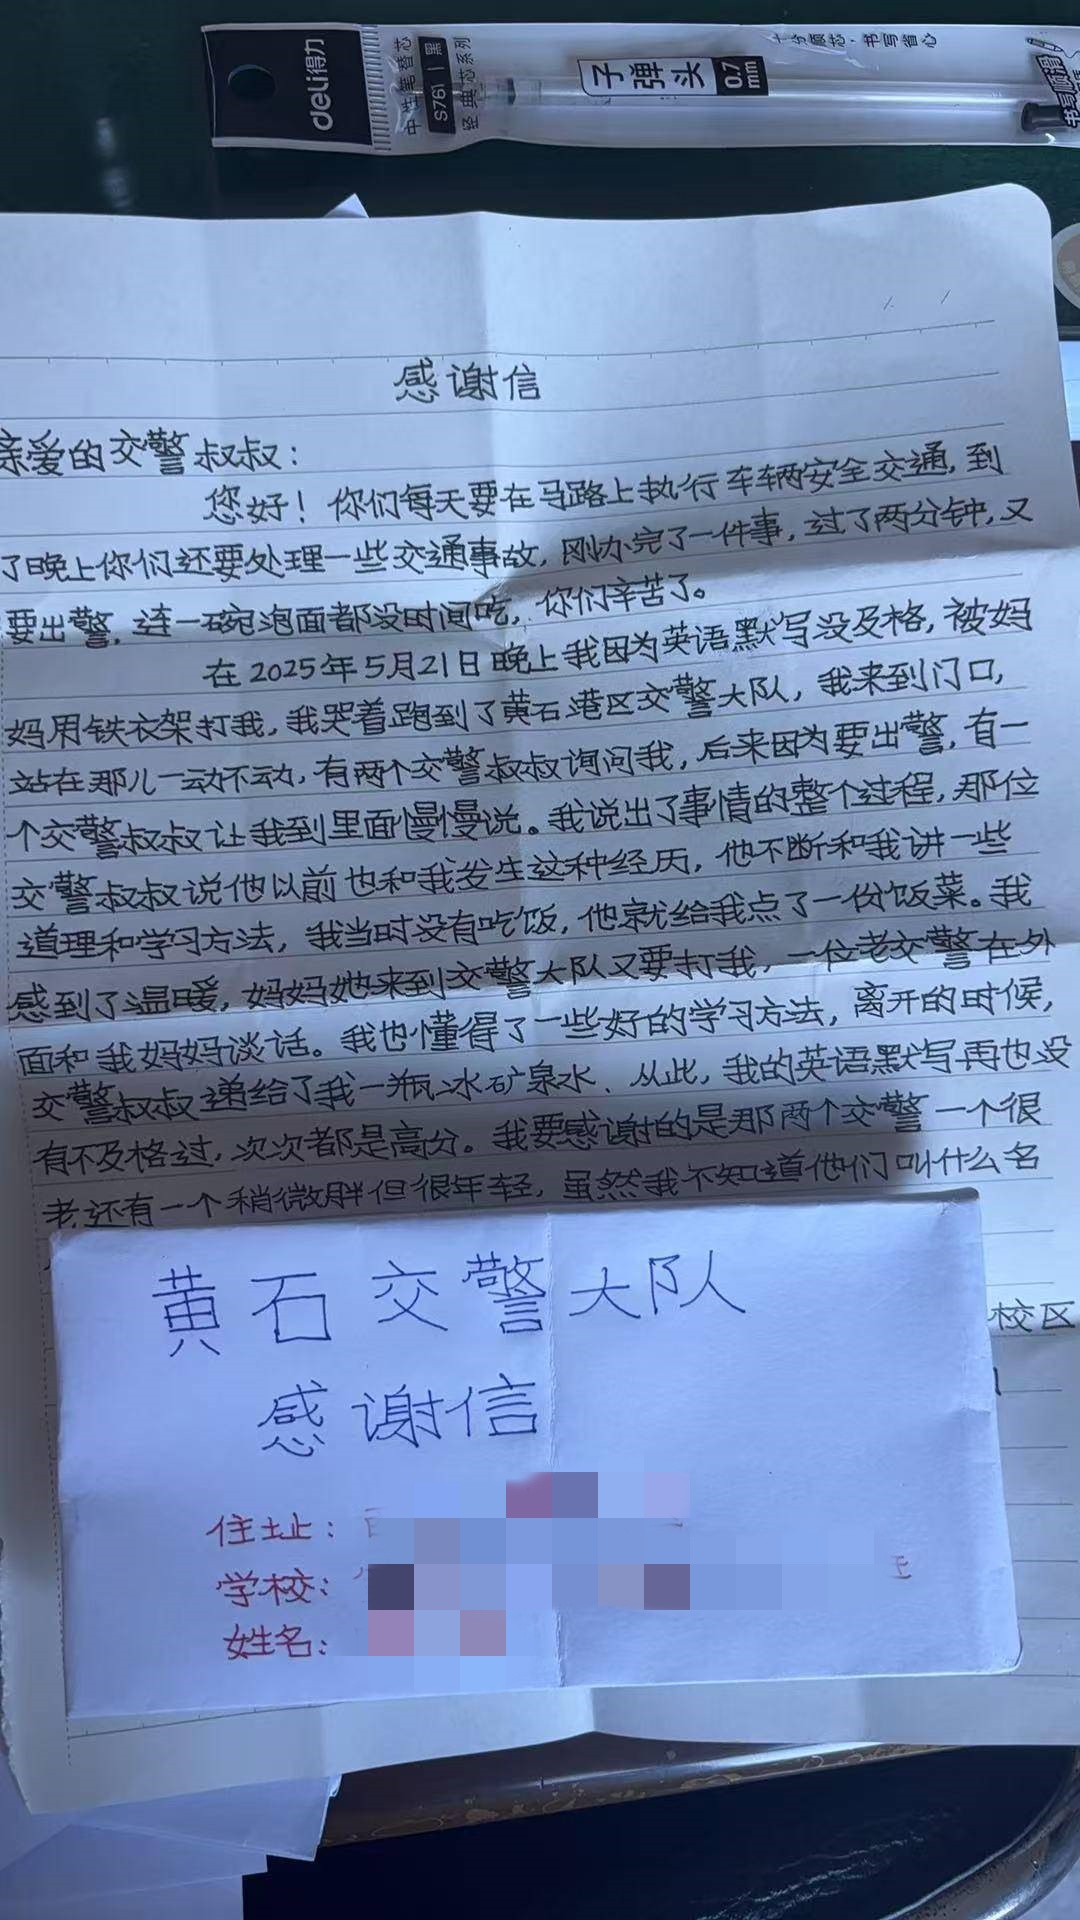 deli得力
中性笔替芯
S761 黑
经典芯系列
子弹头 0.7mm
书写省心
书写顺滑
感谢信
亲爱的交警叔叔：
您好！你们每天要在马路上执行车辆安全交通，到
了晚上你们还要处理一些交通事故，刚办完了一件事，过了两分钟，又
要出警，连一碗泡面都没时间吃，你们辛苦了。
在2025年5月21日晚上我因为英语默写没及格，被妈
妈用铁衣架打我，我哭着跑到了黄石港区交警大队，我来到门口，
站在那儿一动不动，有两个交警叔叔询问我，后来因为要出警，有一
个交警叔叔让我到里面慢慢说。我说出了事情的整个过程，那位
交警叔叔说他以前也和我发生这种经历，他不断和我讲一些
道理和学习方法，我当时没有吃饭，他就给我点了一份饭菜。我
感到了温暖，妈妈她来到交警大队又要打我，一位老交警在外
面和我妈妈谈话。我也懂得了一些好的学习方法，离开的时候，
交警叔叔递给了我一瓶冰矿泉水、从此，我的英语默写再也没
有不及格过，次次都是高分。我要感谢的是那两个交警一个很
老还有一个稍微胖但很年轻，虽然我不知道他们叫什么名
校区
黄石交警大队
感谢信
住址：
学校：
姓名：